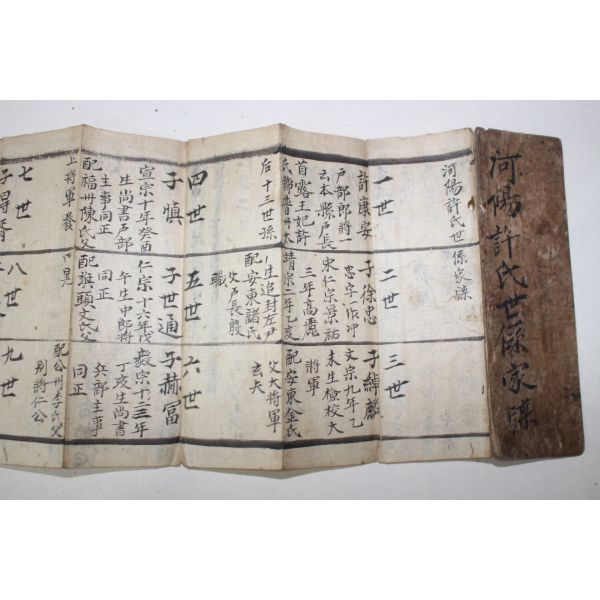 河陽許氏世係家牒
河陽許氏世係家牒
一世
許康安
戶部郎將一
云本縣戶長
首露王妃許
后十三世孫
二世
子徐忠
忠字一作冲
宋仁宗景祐
三年高麗
靖宗二年乙亥
生追封左尹
配安東諸氏
父戶長殷
職
三世
子綽麒
文宗九年乙
未生檢校大
將軍
配安東金氏
父大將軍
玄夫
四世
子愼
宣宗十年癸酉
生尚書戶部
主事同正
配福州陳氏父
上將軍養
五世
子世通
仁宗十六年戊
午生中郎將
同正
配旗頭文氏父
六世
子赫冨
毅宗十三年
丁亥生尚書
兵部主事
同正
配公州李氏父
別將仁公
七世
八世
九世